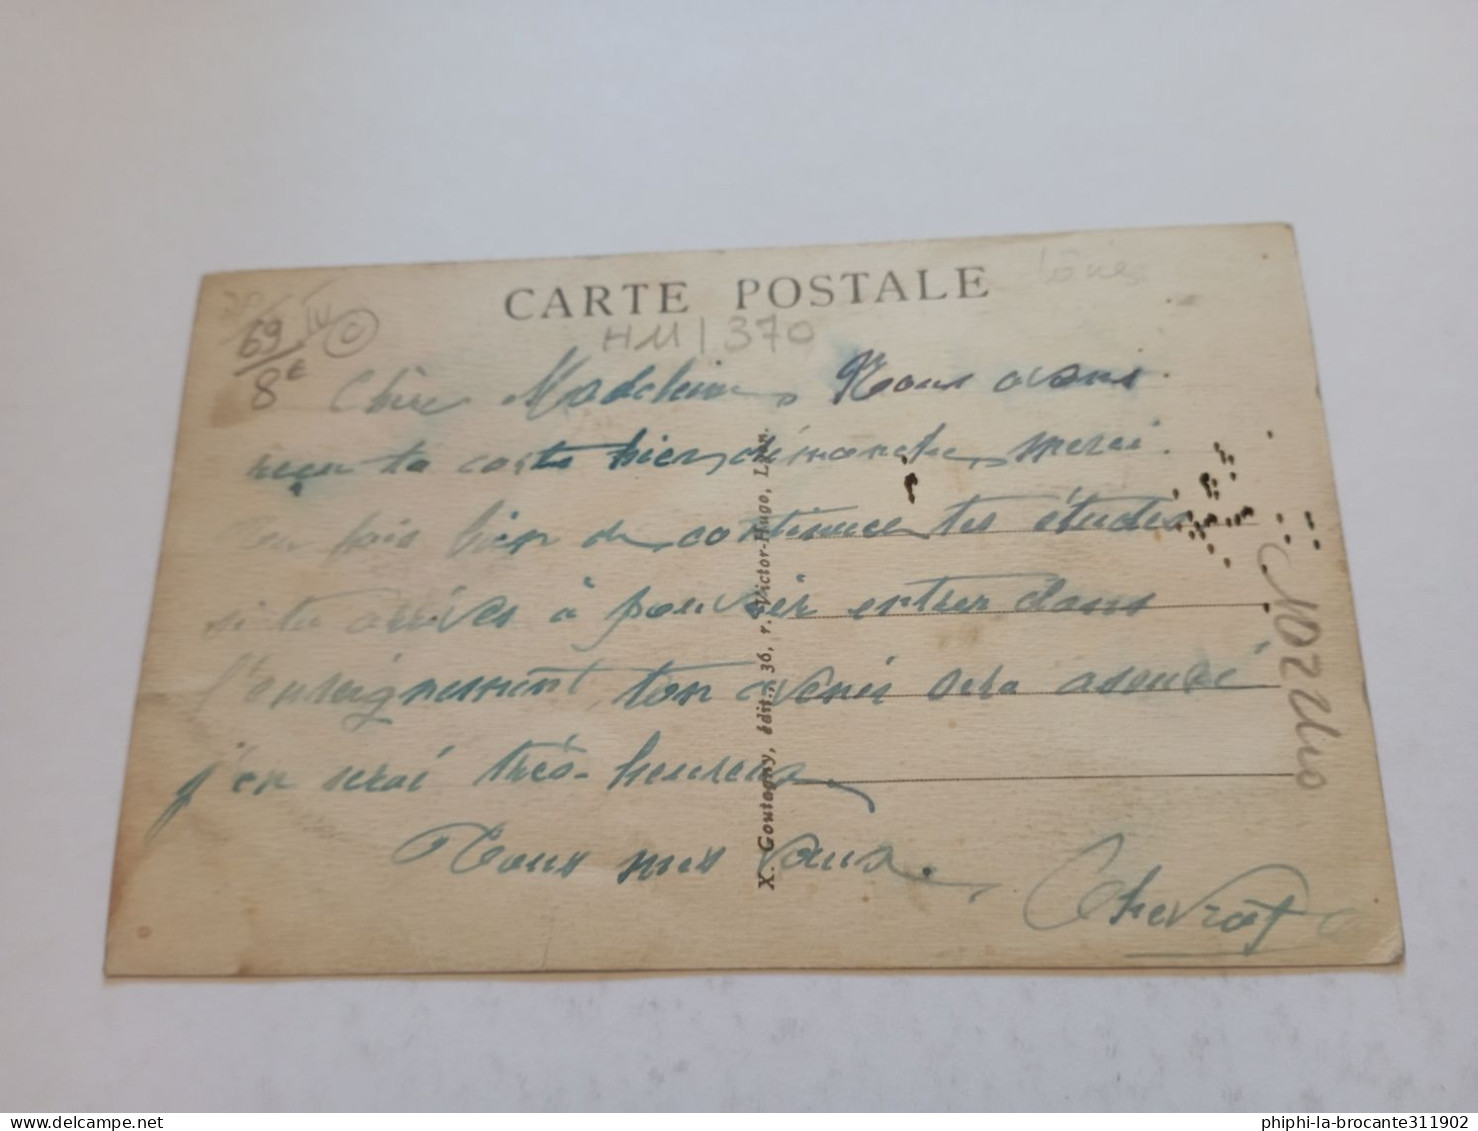 CARTE POSTALE
69
8€
HM/370
Chère Madeleine, Nous avons
reçu ta carte hier dimanche, merci.
Tu fais bien de continuer tes études
si tu arrives à pouvoir entrer dans
l'enseignement, ton avenir sera assuré
j'en serai très heureux
Tous mes vœux.
Chevrot
X. Goutagny, édit., 36, r. Victor-Hugo, Lyon.
phiphi-la-brocante311902